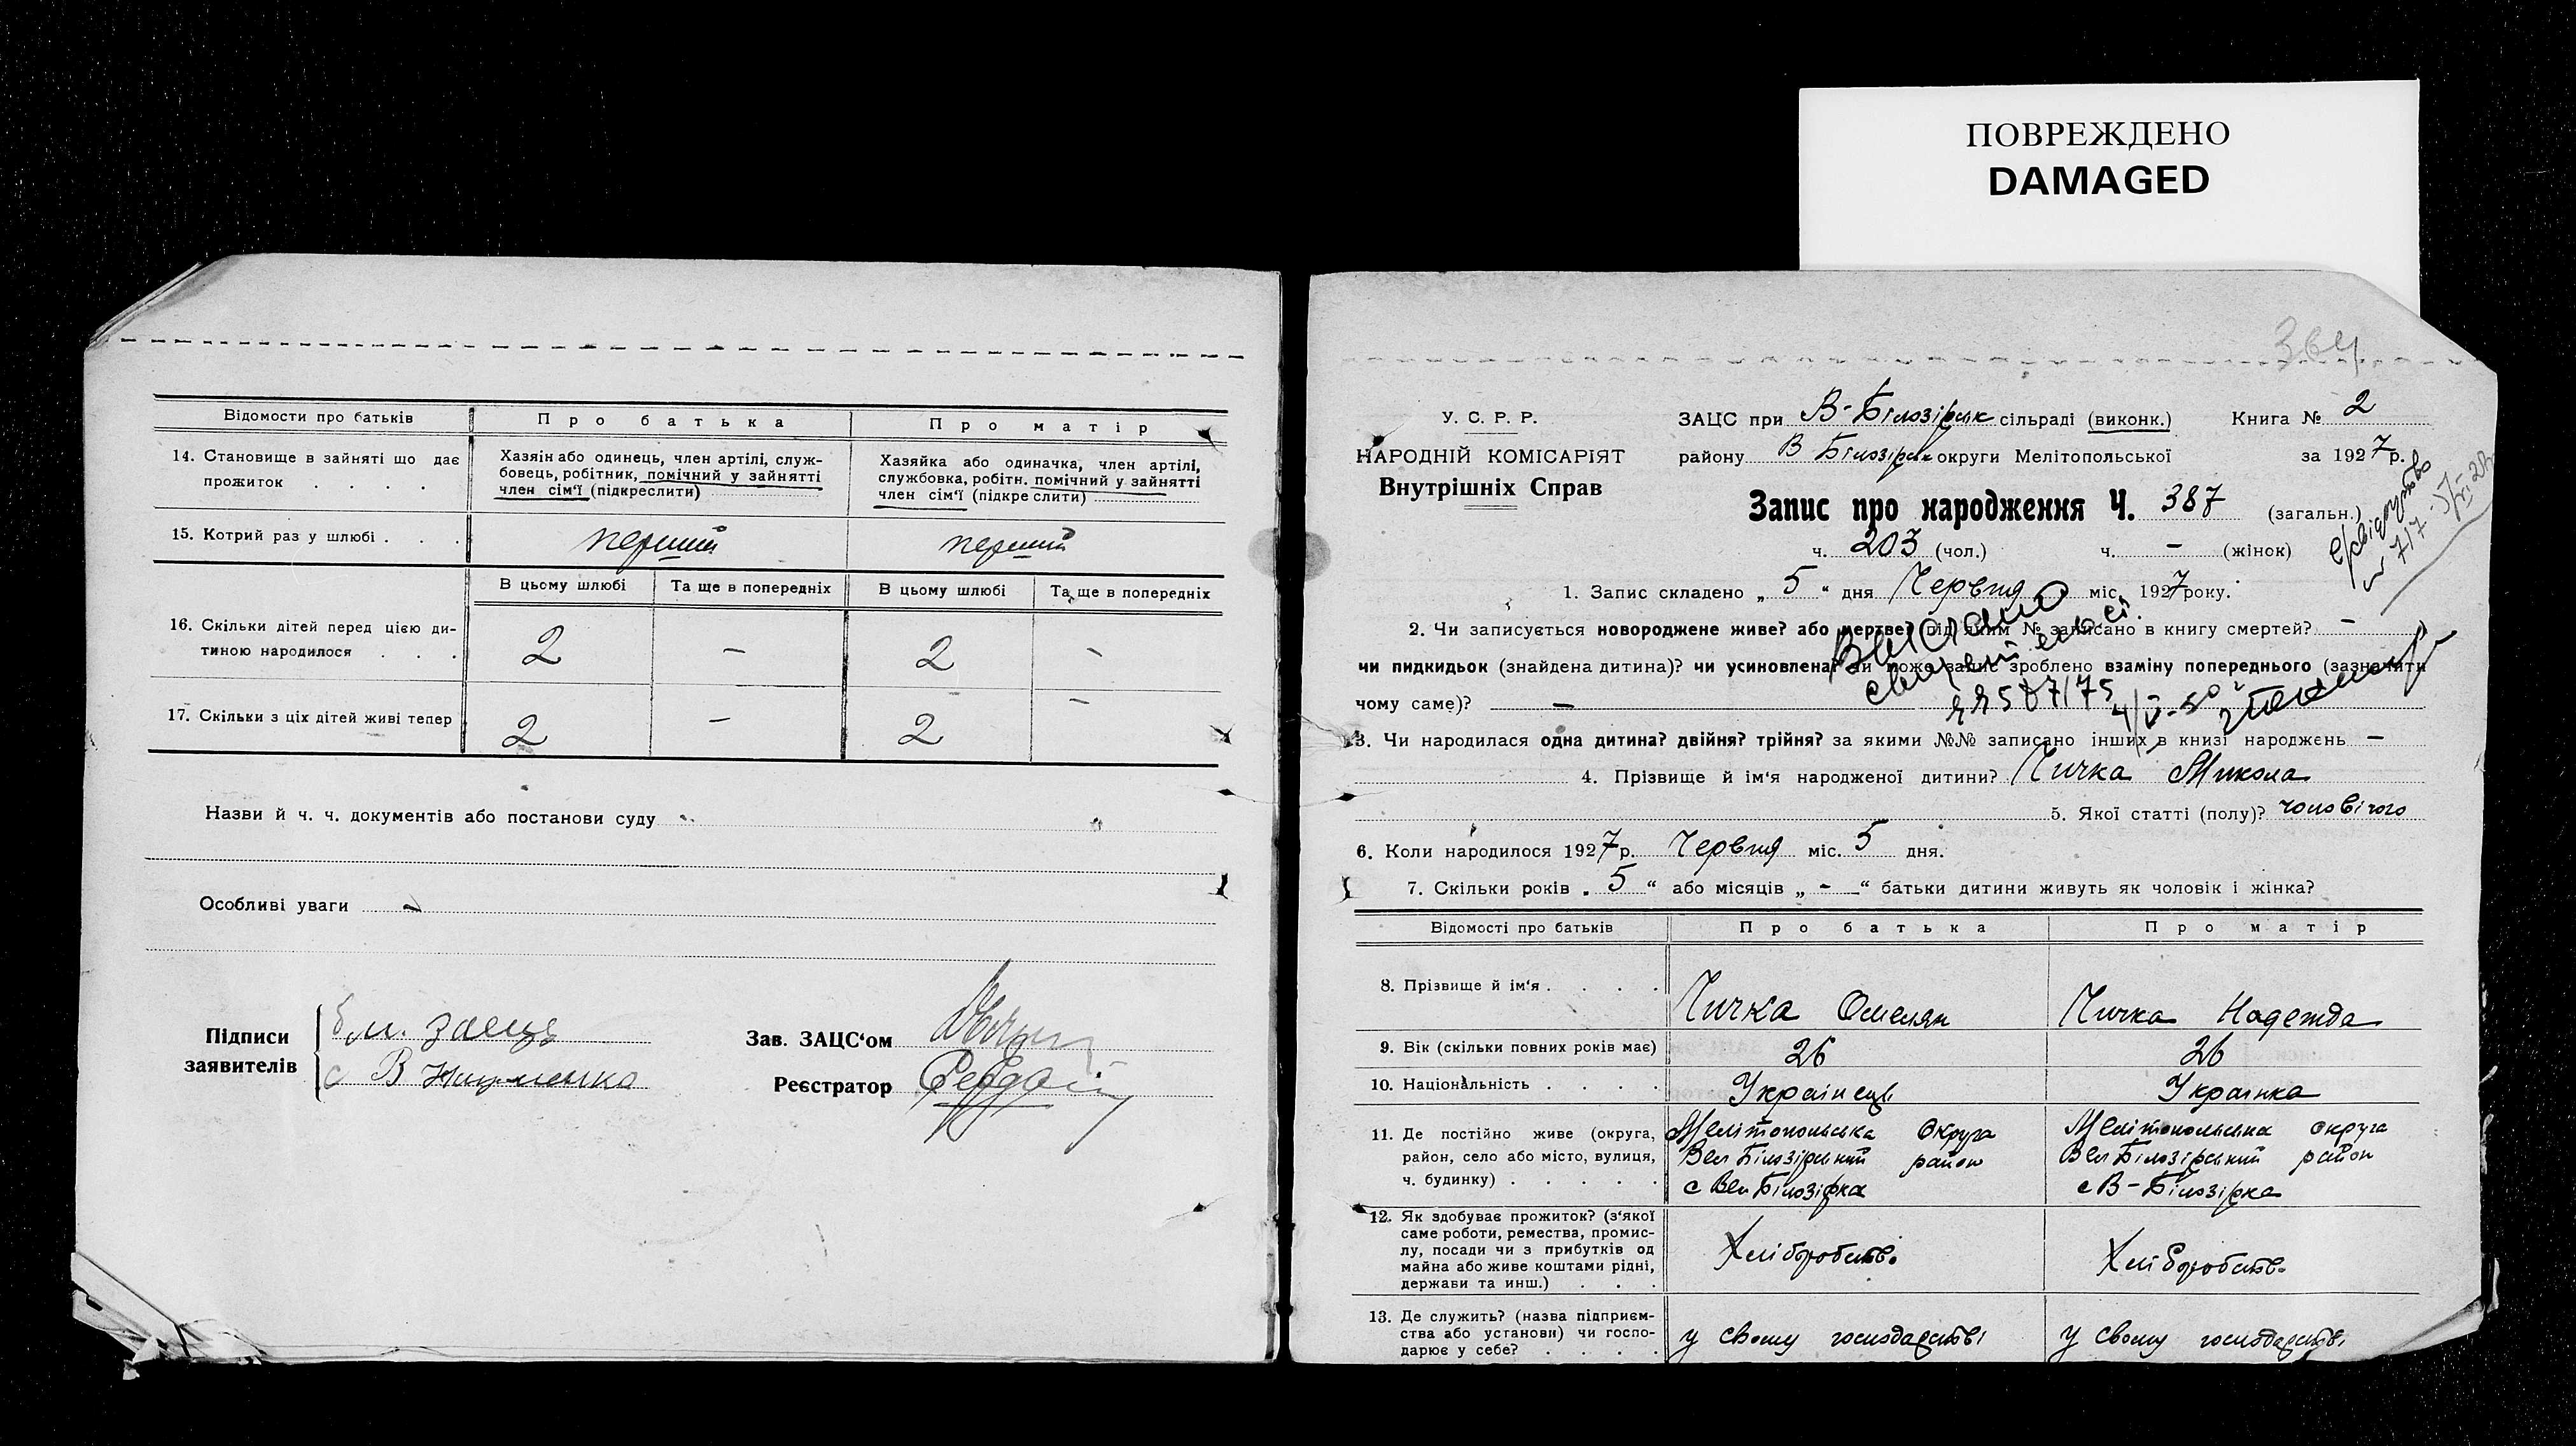 ПОВРЕЖДЕНО
DAMAGED
Відомости про батьків
Про батька
Про матір
14. Становище в зайняті що дає
прожиток . . . .
Хазяін або одинець, член артілі, служ-
бовець, робітник, помічний у зайнятті
член сім‘ї (підкреслити)
Хазяйка або одиначка, член артілі,
службовка, робітн. помічний у зайнятті
член сім‘ї (підкре слити)
15. Котрий раз у шлюбі . . .
перший
перший
В цьому шлюбі
Та ще в попередніх
В цьому шлюбі
Та ще в попередніх
16. Скільки дітей перед цією ди-
тиною народилося . . .
2 – 2 –
17. Скільки з ціх дітей живі тепер
2 – 2 –
Назви й ч. ч. документів або постанови суду
Особливі уваги –
Підписи
заявителів
Заець
В Науменко
Зав. ЗАЦС‘ом
Реєстратор
364
У. С. Р. Р.
НАРОДНІЙ КОМІСАРІЯТ
Внутрішніх Справ
ЗАЦС при В-Білозірськ сільраді (виконк.) Книга № 2
району В Білозірськ округи Мелітопольської за 1927 р.
Запис про народження Ч. 387 (загальн.)
ч. 203 (чол.) ч. – (жінок)
1. Запис складено „ 5 “ дня Червня міс. 1927 року.
2. Чи записується новороджене живе? або мертве? під яким № записано в книгу смертей? –
чи пидкидьок (знайдена дитина)? чи усиновлена? чи може запис зроблено взаміну попереднього (зазначити
чому саме)? –
3. Чи народилася одна дитина? двійня? трійня? за якими №№ записано інших в книзі народжень –
4. Прізвище й ім‘я народженої дитини? Личка Микола
5. Якої статті (полу)? чоловічого
6. Коли народилося 1927 р. Червня міс. 5 дня.
7. Скільки років „ 5 “ або місяців „ – “ батьки дитини живуть як чоловік і жінка?
Відомості про батьків
Про батька
Про матір
8. Прізвище й ім‘я . . . .
Личка Омелян
Личка Надежда
9. Вік (скільки повних років має)
26
26
10. Національність . . . .
Українець
Українка
11. Де постійно живе (округа,
район, село або місто, вулиця,
ч. будинку) . . . . .
Мелітопольська Округа
Вел Білозірський район
с Вел Білозірка
Мелітопольська округа
Вел Білозірський район
с В-Білозірка
12. Як здобуває прожиток? (з‘якої
саме роботи, ремества, промис-
лу, посади чи з прибутків од
майна або живе коштами рідні,
держави та инш.) . . .
Хліборобств.
Хліборобств.
13. Де служить? (назва підприєм-
ства або установи) чи госпо-
дарює у себе? . . . .
у свому господарстві
у свому господарстві